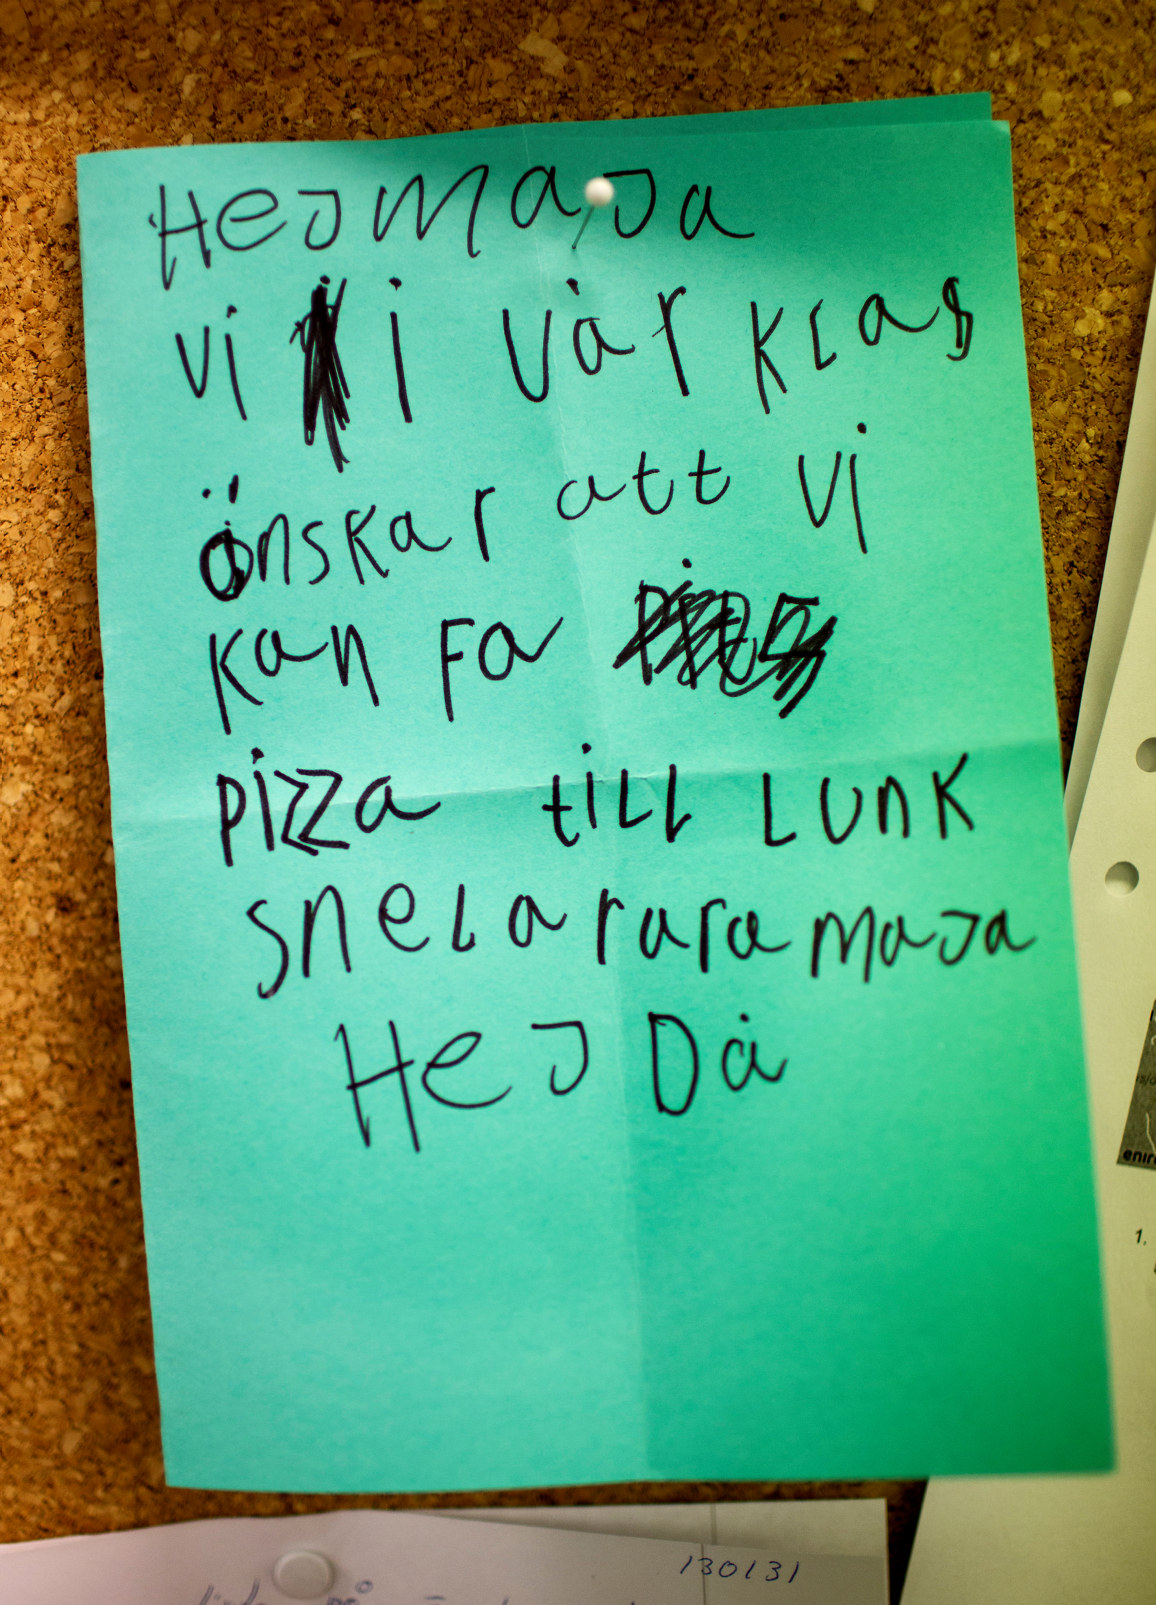 Hej maja
vi i vår klas
önskar att vi
kan Fa
pizza till LUnK
snela rara maja
Hej Då
130131
enir
1.